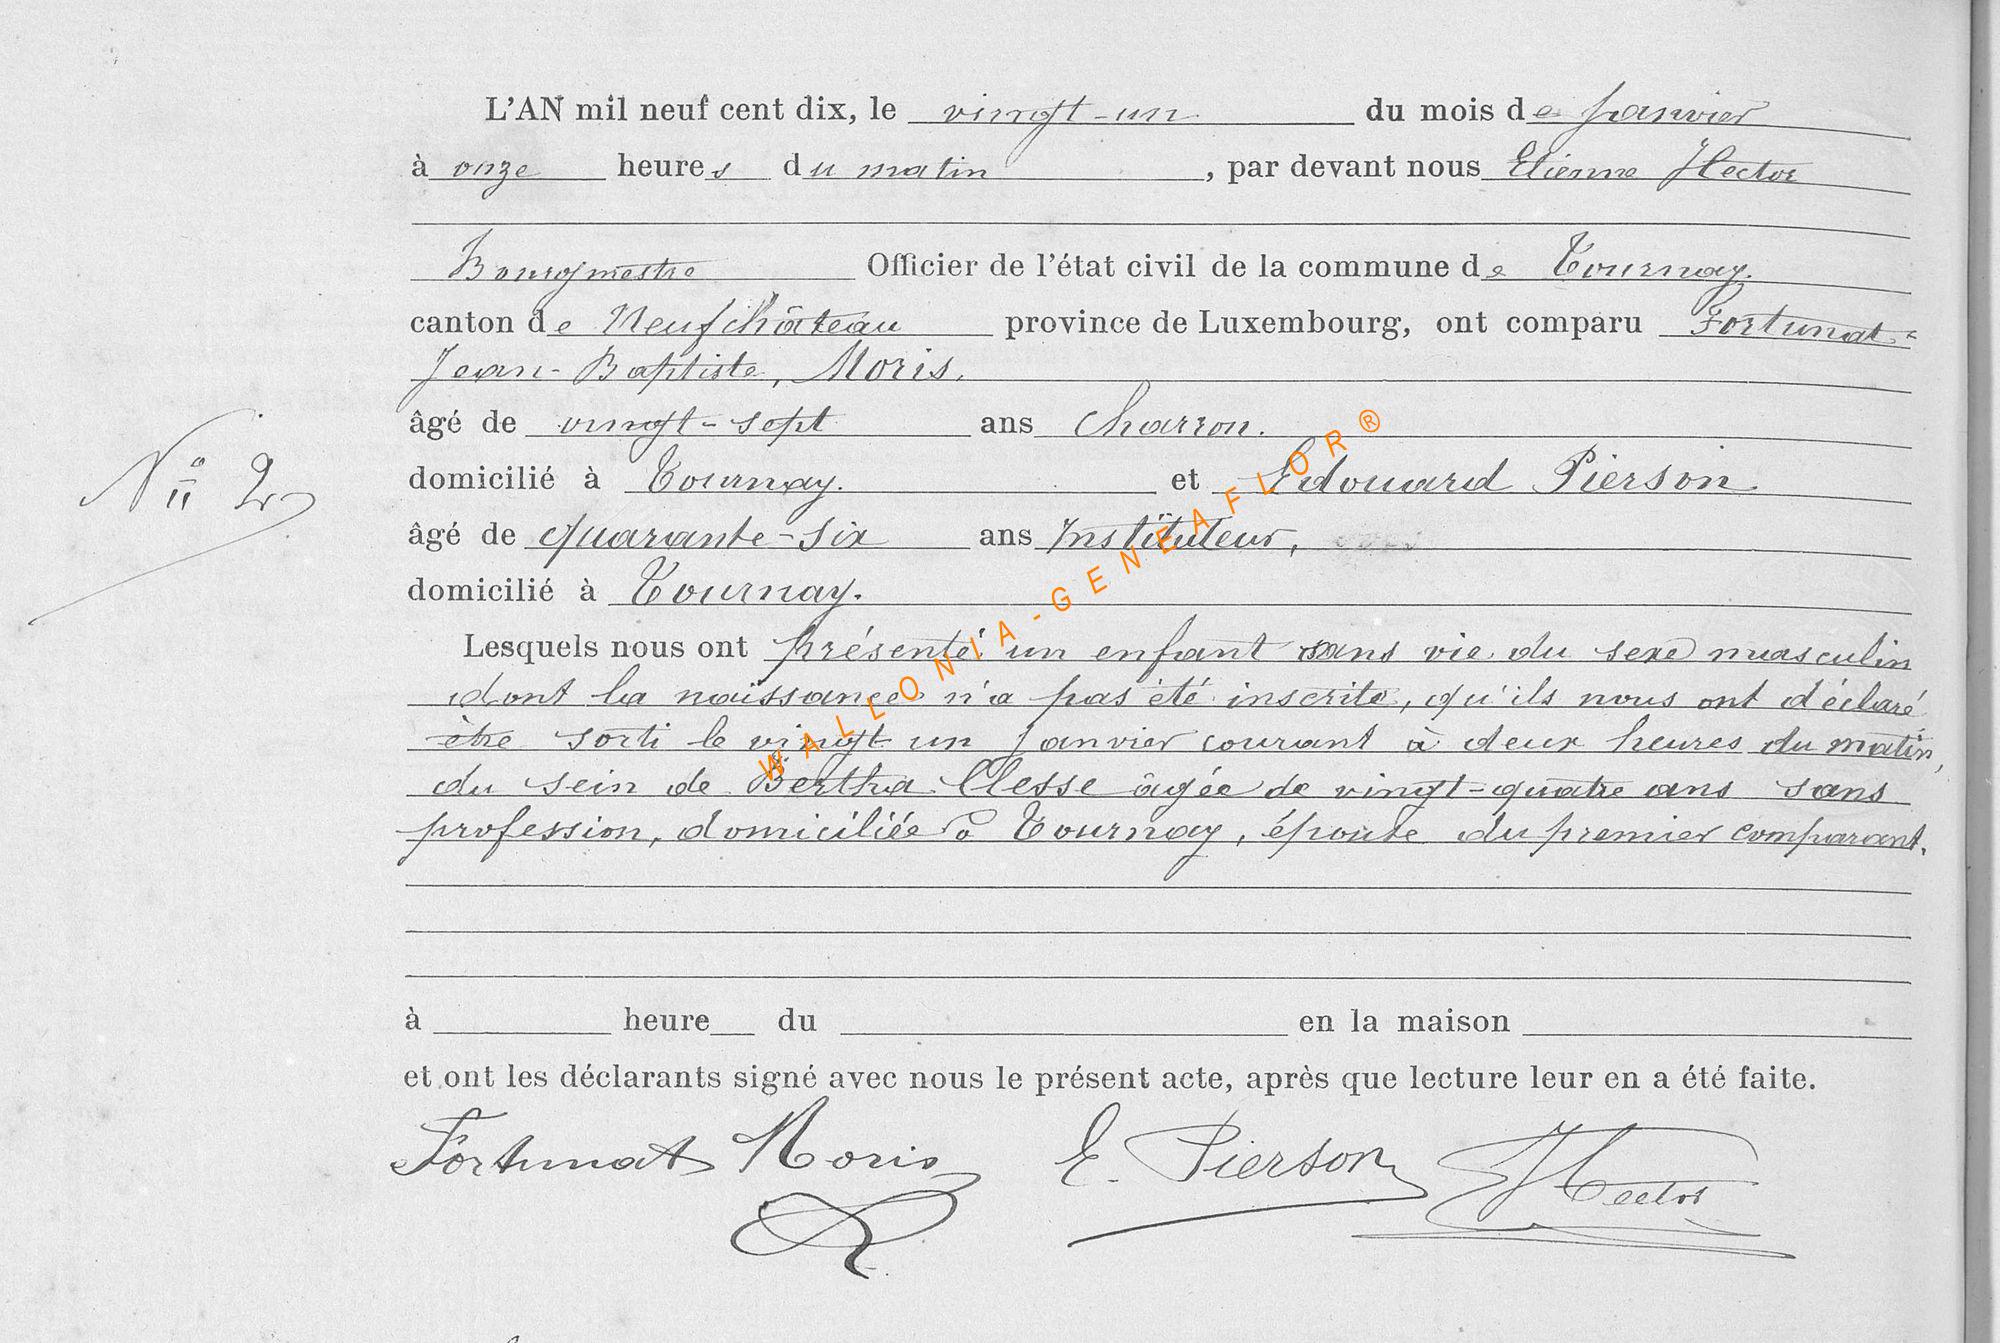 L'AN mil neuf cent dix, le vingt-un du mois de Janvier
à onze heures du matin, par devant nous Etienne Hector
Bourgmestre Officier de l'état civil de la commune de Tournay.
canton de Neufchâteau province de Luxembourg, ont comparu Fortunat-
Jean-Baptiste, Moris.
âgé de vingt-sept ans Charron.
domicilié à Tournay. et Edouard Pierson
N° 2
âgé de quarante-six ans Instituteur,
domicilié à Tournay.
Lesquels nous ont présenté un enfant sans vie du sexe masculin
dont la naissance n'a pas été inscrite, qu'ils nous ont déclaré
être sorti le vingt un janvier courant à deux heures du matin,
du sein de Bertha Clesse âgée de vingt-quatre ans sans
profession, domiciliée à Tournay, épouse du premier comparant.
à heure du en la maison
et ont les déclarants signé avec nous le présent acte, après que lecture leur en a été faite.
Fortunat Moris E. Pierson Hector
WALLONIA-GENEAFLOR®